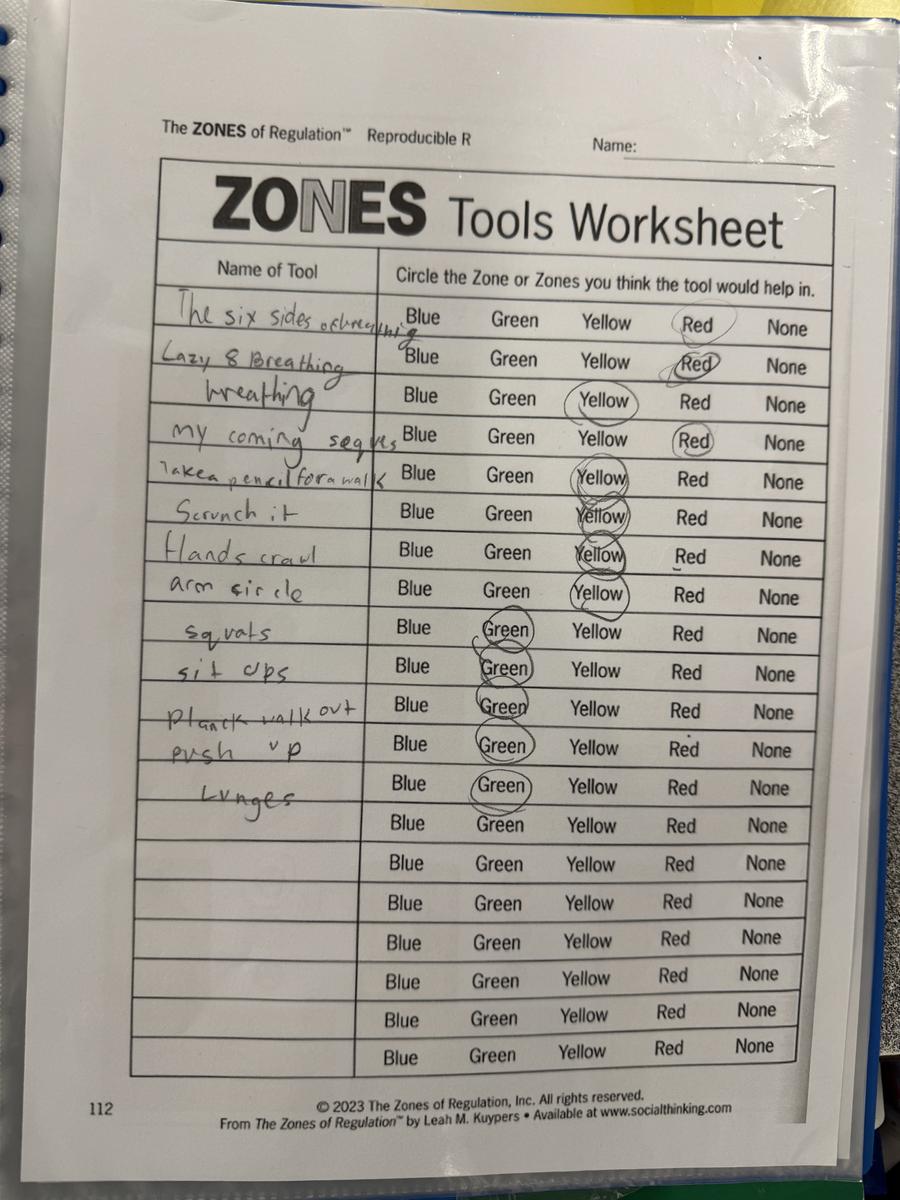 The ZONES of Regulation™ Reproducible R Name:
ZONES Tools Worksheet
Name of Tool Circle the Zone or Zones you think the tool would help in.
The six sides of breathing Blue Green Yellow Red None
Lazy 8 Breathing Blue Green Yellow Red None
breathing Blue Green Yellow Red None
my coming seques Blue Green Yellow Red None
Take a pencil for a walk Blue Green Yellow Red None
Scrunch it Blue Green Yellow Red None
Hands crawl Blue Green Yellow Red None
arm circle Blue Green Yellow Red None
squats Blue Green Yellow Red None
sit ups Blue Green Yellow Red None
Planck walk out Blue Green Yellow Red None
push up Blue Green Yellow Red None
Lunges Blue Green Yellow Red None
Blue Green Yellow Red None
Blue Green Yellow Red None
Blue Green Yellow Red None
Blue Green Yellow Red None
Blue Green Yellow Red None
Blue Green Yellow Red None
Blue Green Yellow Red None
112
© 2023 The Zones of Regulation, Inc. All rights reserved.
From The Zones of Regulation™ by Leah M. Kuypers • Available at www.socialthinking.com